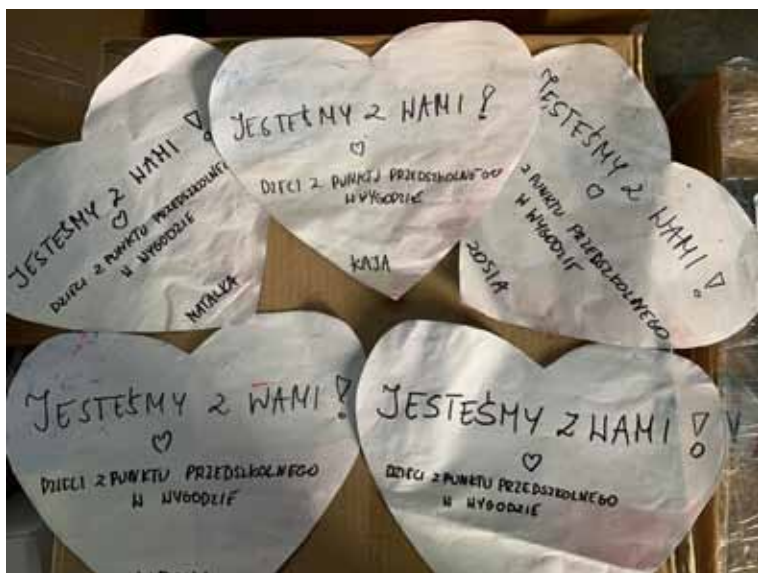 JESTEŚMY Z WAMI!
DZIECI Z PUNKTU PRZEDSZKOLNEGO
W WYGODZIE
NATALKA
JESTEŚMY Z WAMI!
DZIECI Z PUNKTU PRZEDSZKOLNEGO
W WYGODZIE
KAJA
JESTEŚMY Z WAMI!
Z PUNKTU PRZEDSZKOLNEGO
W WYGODZIE
ZOSIA
JESTEŚMY Z WAMI!
DZIECI Z PUNKTU PRZEDSZKOLNEGO
W WYGODZIE
JESTEŚMY Z WAMI!
DZIECI Z PUNKTU PRZEDSZKOLNEGO
W WYGODZIE